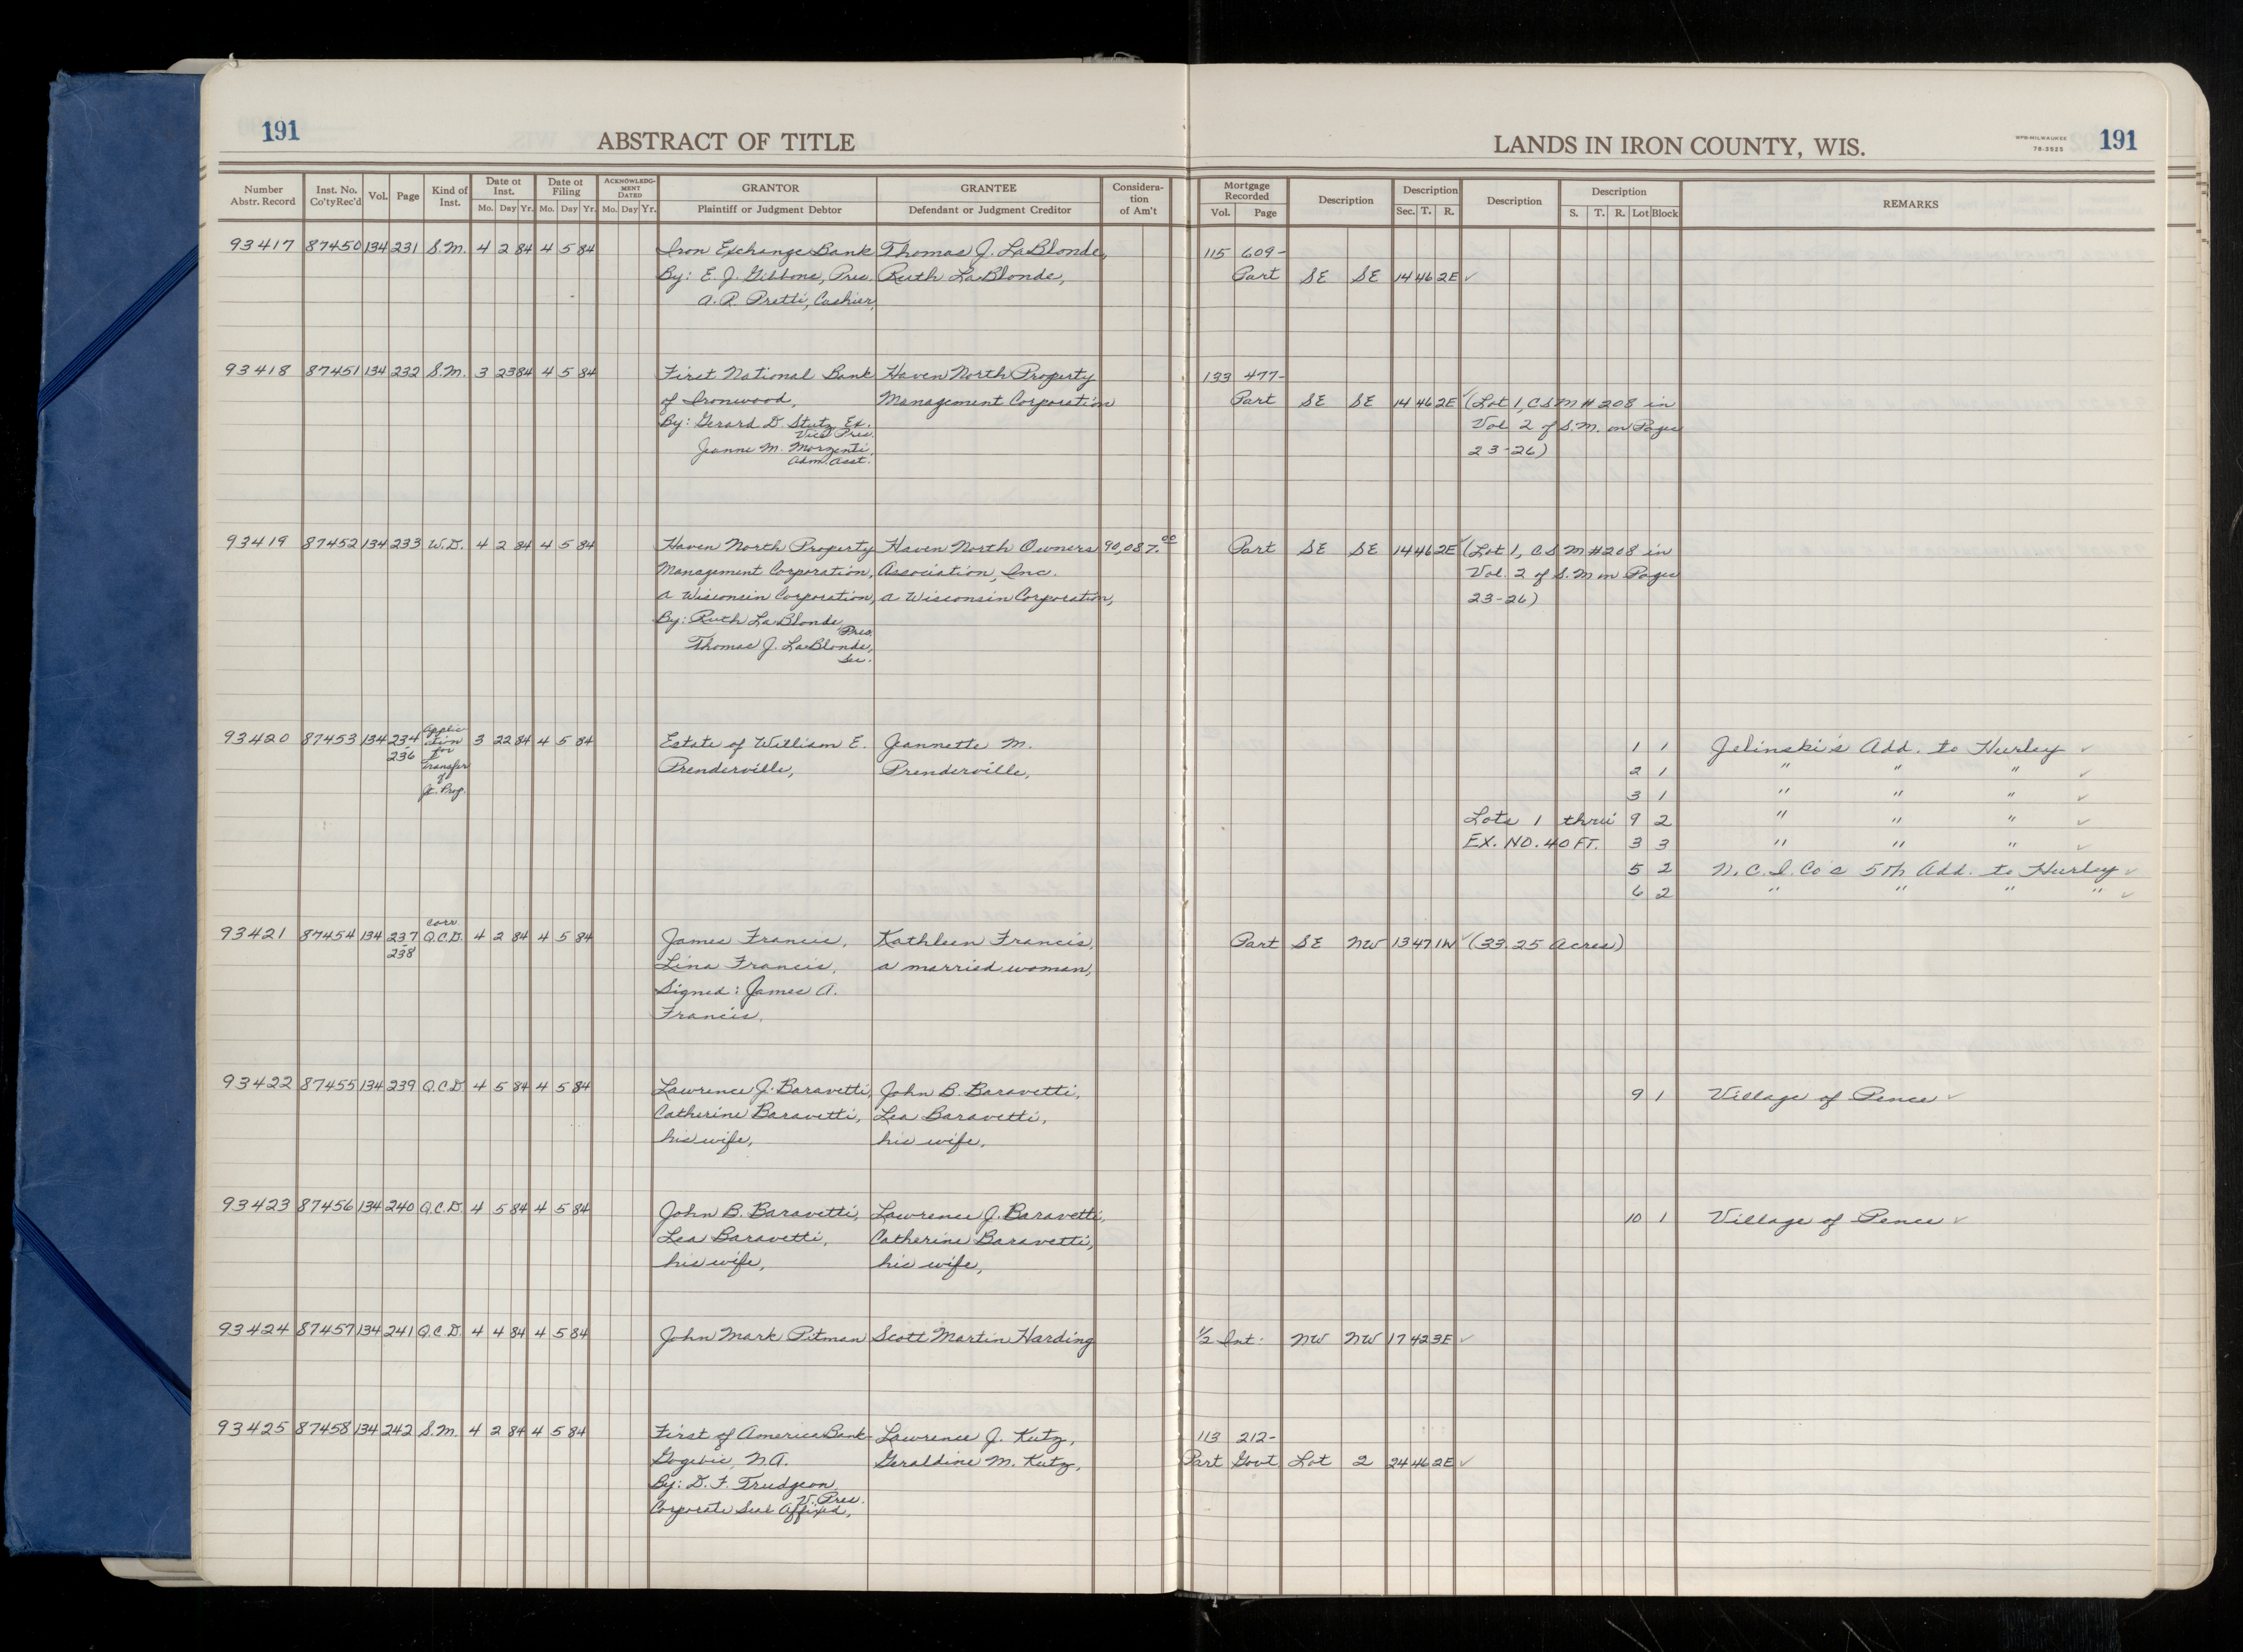 191
ABSTRACT OF TITLE
LANDS IN IRON COUNTY, WIS.
WPB-MILWAUKEE
78-3525
191
Number Abstr. Record | Inst. No. Co'ty Rec'd | Vol. | Page | Kind of Inst. | Date of Inst. Mo. Day Yr. | Date of Filing Mo. Day Yr. | ACKNOWLEDGMENT DATED Mo. Day Yr. | GRANTOR Plaintiff or Judgment Debtor | GRANTEE Defendant or Judgment Creditor | Consideration of Am't | Mortgage Recorded Vol. Page | Description | Description Sec. T. R. | Description | Description S. T. R. Lot Block | REMARKS
93417 87450 134 231 S.M. 4 2 84 4 5 84 Iron Exchange Bank Thomas J. LaBlonde, 115 609-
By: E. J. Gibbons, Pres. Ruth LaBlonde, Part SE SE 14 46 2E ✓
A. R. Pretti, Cashier,
93418 87451 134 232 S.M. 3 23 84 4 5 84 First National Bank Haven North Property 133 477-
of Ironwood, Management Corporation Part SE SE 14 46 2E ✓ (Lot 1, CSM #208 in
By: Gerard D. Stutz, Ex. Vol. 2 of S.M. on Pages
Vice Pres.
Jeanne M. Morzenti, 23-26)
Adm. Asst.
93419 87452 134 233 W.D. 4 2 84 4 5 84 Haven North Property Haven North Owners 90,087.00 Part SE SE 14 46 2E ✓ (Lot 1, CSM #208 in
Management Corporation, Association, Inc. Vol. 2 of S.M on Pages
a Wisconsin Corporation, a Wisconsin Corporation, 23-26)
By: Ruth LaBlonde,
Pres.
Thomas J. LaBlonde,
Sec.
93420 87453 134 234-236 Application for Transfer of Jt. Prop. 3 22 84 4 5 84 Estate of William E. Jeannette M. 1 1 Jelinski's Add. to Hurley ✓
Prenderville, Prenderville, 2 1 " " " ✓
3 1 " " " ✓
Lots 1 thru 9 2 " " " ✓
EX. NO. 40 FT. 3 3 " " " ✓
5 2 N.C.I. Co's 5th Add. to Hurley ✓
6 2 " " " " ✓
93421 87454 134 237-238 Corr. Q.C.D. 4 2 84 4 5 84 James Francis, Kathleen Francis, Part SE NW 13 47 1W ✓ (33.25 Acres)
Lina Francis, a married woman,
Signed: James A.
Francis,
93422 87455 134 239 Q.C.D 4 5 84 4 5 84 Lawrence J. Baravetti, John B. Baravetti, 9 1 Village of Pence ✓
Catherine Baravetti, Lea Baravetti,
his wife, his wife,
93423 87456 134 240 Q.C.D. 4 5 84 4 5 84 John B. Baravetti, Lawrence J. Baravetti, 10 1 Village of Pence ✓
Lea Baravetti, Catherine Baravetti,
his wife, his wife,
93424 87457 134 241 Q.C.D. 4 4 84 4 5 84 John Mark Pitman Scott Martin Harding 1/2 Int. NW NW 17 42 3E ✓
93425 87458 134 242 S.M. 4 2 84 4 5 84 First of America Bank- Lawrence J. Kutz, 113 212-
Gogebic, N.A. Geraldine M. Kutz, Part Govt Lot 2 24 46 2E ✓
By: D. F. Trudgeon
V. Pres.
Corporate Seal Affixed,